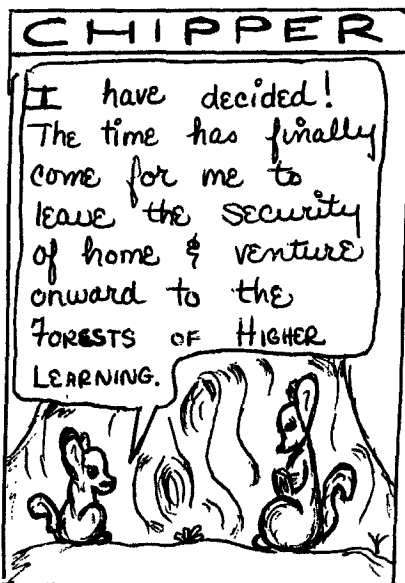 CHIPPER
I have decided!
The time has finally
come for me to
leave the security
of home & venture
onward to the
FORESTS OF HIGHER
LEARNING.